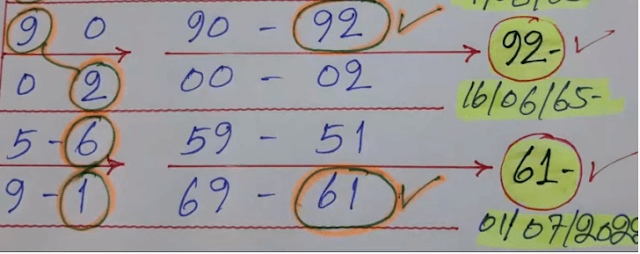 9 0 90 - 92 92-
0 2 00 - 02 16/06/65-
5 - 6 59 - 51
9 - 1 69 - 61 61-
01/07/2022